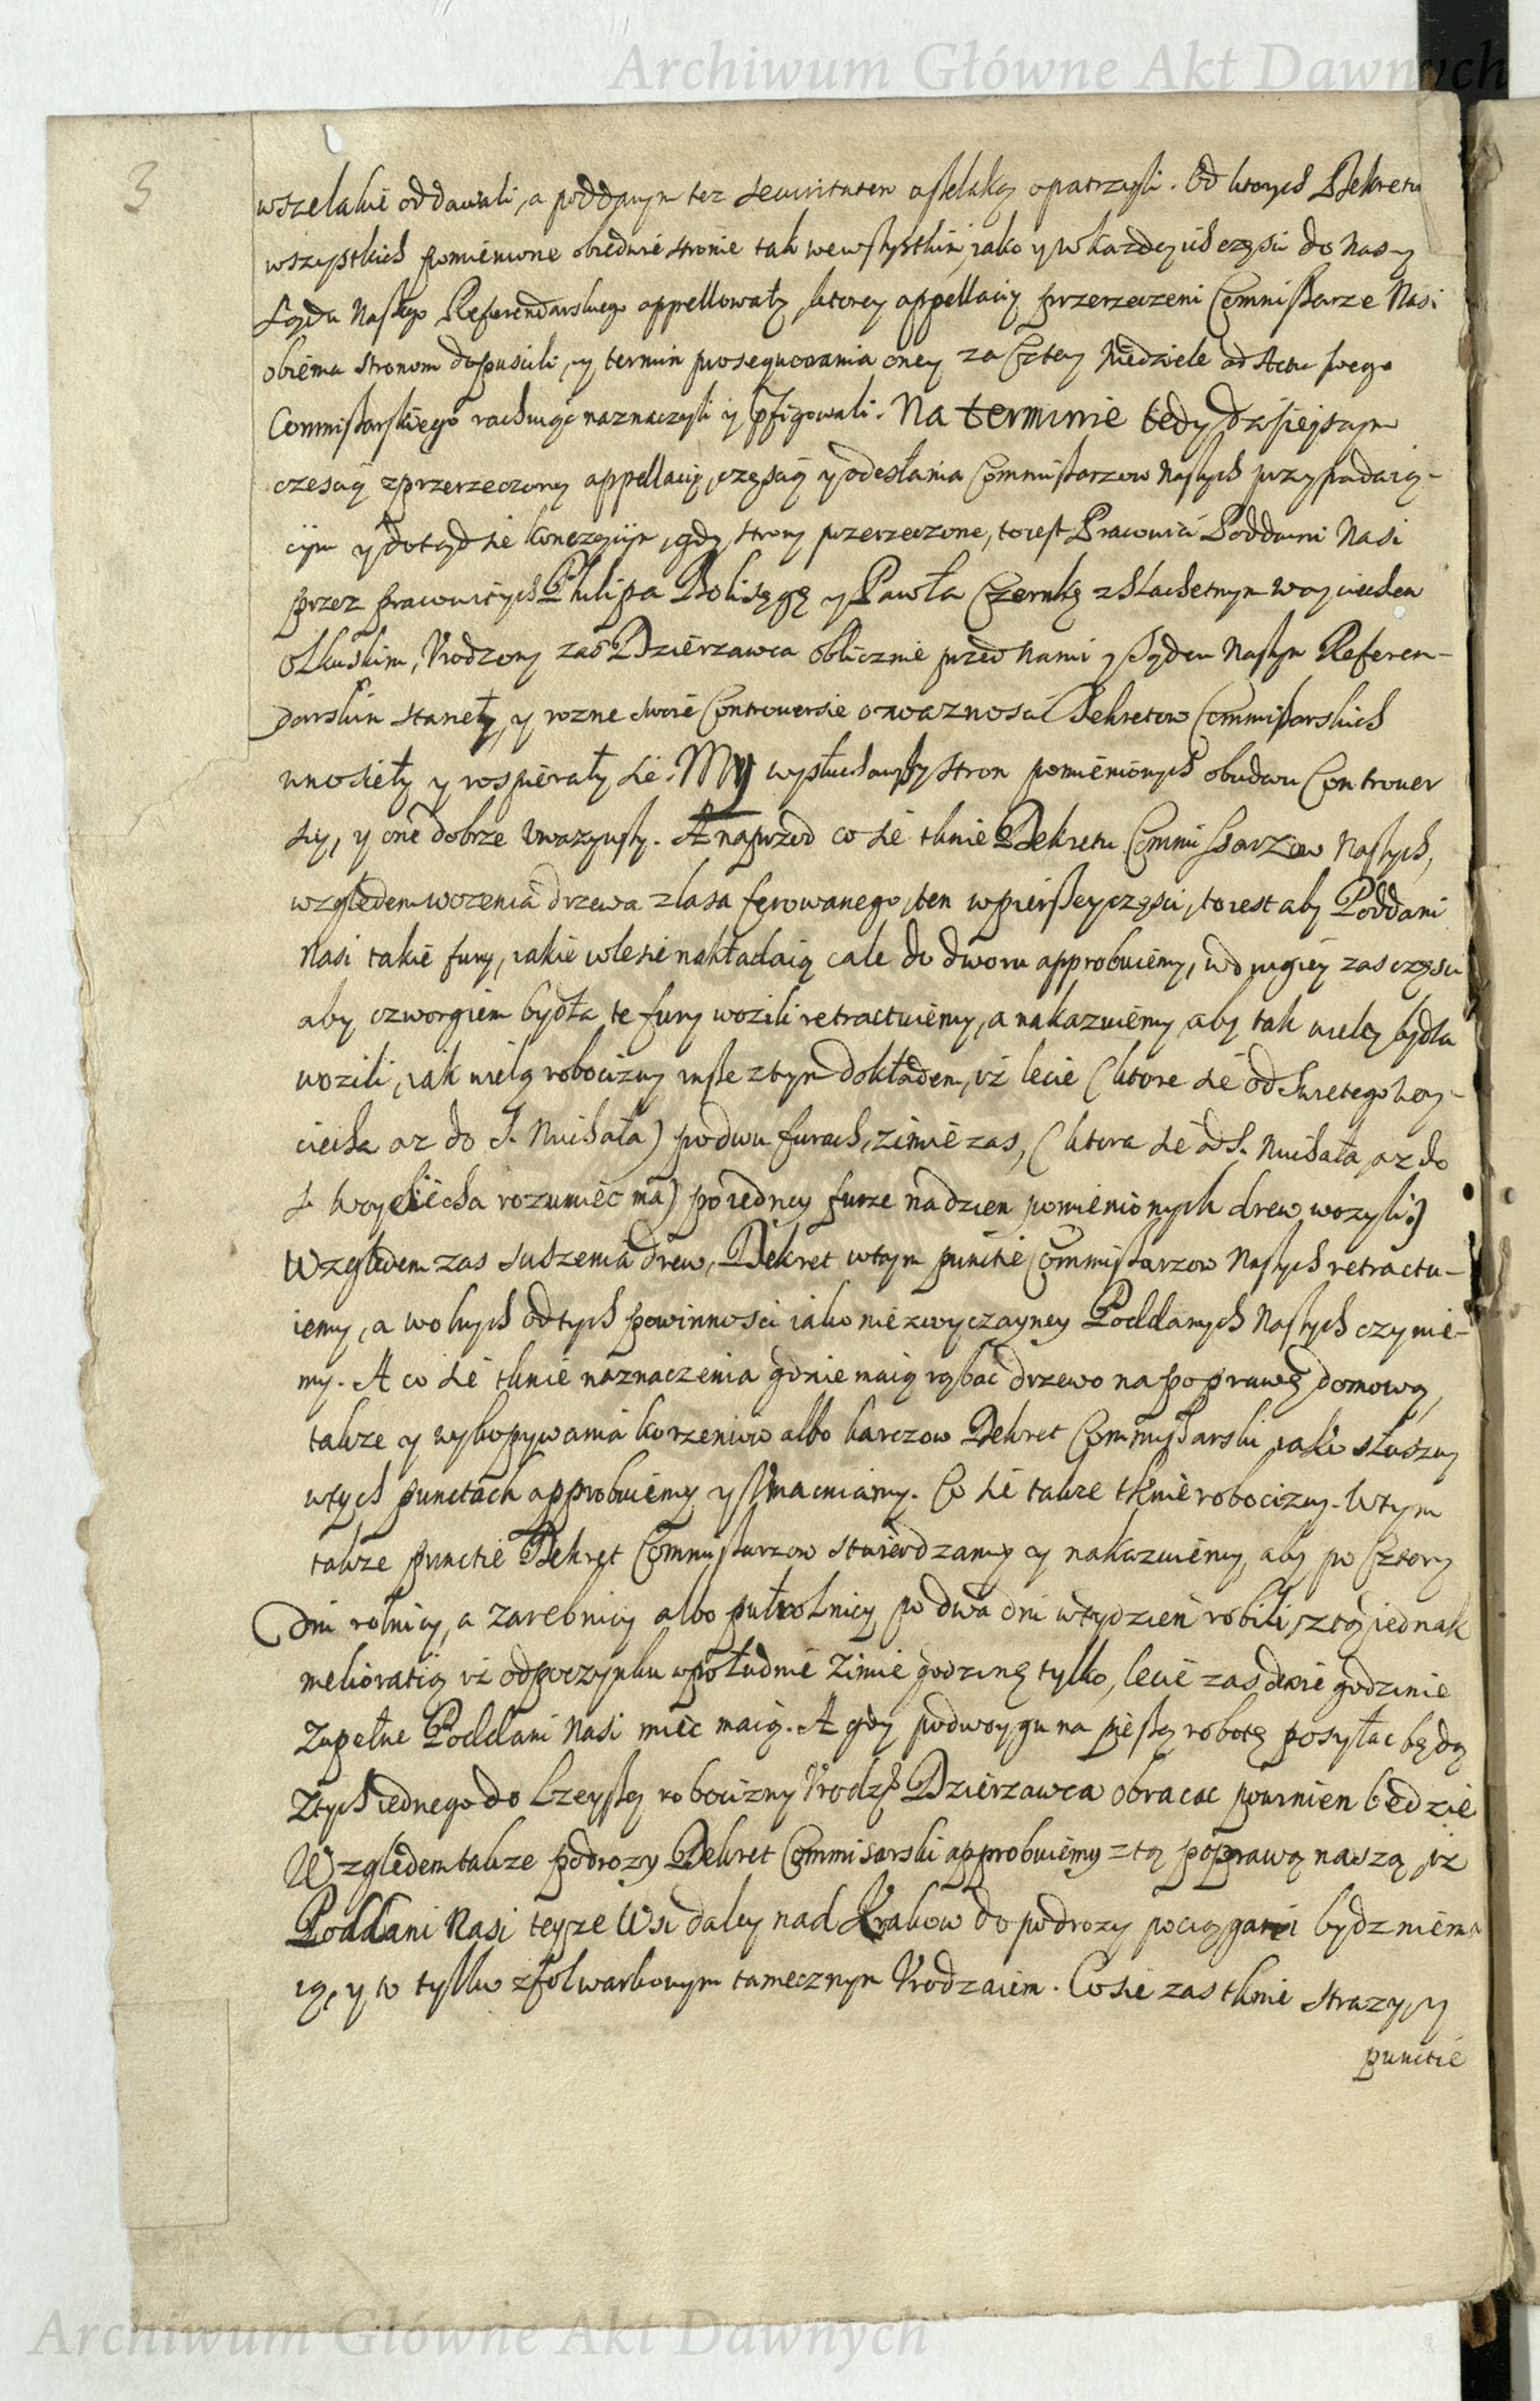 Archiwum Główne Akt Dawnych
3
wszelakie oddawali, a poddanym tez securitatem wszelaką opatrzyli. Od ktorych Dekretu
wszystkich pomienione obiedwie stronie tak we wszystkim, iako y w kazdey ich częsci do Nas y
Sądu Naszego Referendarskiego appellowały, ktorey appellaciy przerzeczeni Commissarze Nasi
obiema stronom dopuscili, y termin prosequowania oney za Cztery Niedziele od Actu swego
Commissarskiego rachuiąc naznaczyli y pfigowali. Na terminie tedy dzisieyszym
czescią z przerzeczoney appellaciy, częscią y odesłania Commissarzow Naszych przypadaią-
cym y dotąd sie kończącym, gdy strony przerzeczone, to iest Pracowici Poddani Nasi
przez pracowitych Philipa Bolisęgę y Pawła Czernkę z Szlachetnym Woyciechem
Olkuskim, Urodzony zaś Dzierzawca oblicznie przed Nami y Sądem Naszym Referen-
darskim staneły, y rozne swoie Controuersie o wazności Dekretow Commissarskich
wnosieły y rospierały sie. My wysłuchawszy stron pomienionych obudwu Controuer
siy, y one dobrze uwazywszy. A naprzod co sie tknie Dekretu Commissarzow Naszych,
względem wozenia drzewa z lasa ferowanego, ten w pierszey części, to iest aby Poddani
Nasi takie fury, iakie w lesie nakładaią cale do dworu approbuiemy, w drugiey zas częsci
aby czworgiem bydła te fury wozili retractuiemy, a nakazuiemy aby tak wielą bydła
wozili, iak wielą robocizny insze z tym dokładem, iż lecie (ktore sie od Swietego Woy-
ciecha az do S. Michała) po dwu furach, zimie zas, (ktora sie od S. Michała az do
S. Woyciecha rozumiec ma) po iedney furze na dzien pomienionych drew wozyli.)
Względem zas suszenia drew, Dekret w tym puncie Commissarzow Naszych retractu-
iemy, a wolnych od tych powinnosci iako niezwyczayney Poddanych Naszych czynie-
my. A co sie tknie naznaczenia gdzie maią rąbac drzewo na poprawę domową,
takze y wykopywania korzeniow albo karczow Dekret Commissarski iako słuszny
w tych punctach approbuiemy y Umacniamy. Co sie takze tknie robocizny. W tym
takze punctie Dekręt Commissarzow stwierdzamy y nakazuiemy, aby po Cztery
dni rolnicy, a zarebnicy albo pułrolnicy po dwa dni w tydzień robili, z tą iednak
melioratią iż odpoczynku w południe zimie godzinę tylko, lecie zas dwie godzinie
zupełne Poddani Nasi miec maią. A gdy po dwoygu na pieszą robotę posyłac będą
z tych iednego do lzeyszey robocizny Urodz: Dzierzawca obracac powinien będzie
Względem takze podrozy Dekret Commisarski approbuiemy z tą poprawą naszą, iz
Poddani Nasi teyze Wsi daley nad Krakow do podrozy pociągani bydz niema
ią, y to tylko z folwarkowym tamecznym Urodzaiem. Co sie zas tknie strazy, y
punctie
Archiwum Główne Akt Dawnych